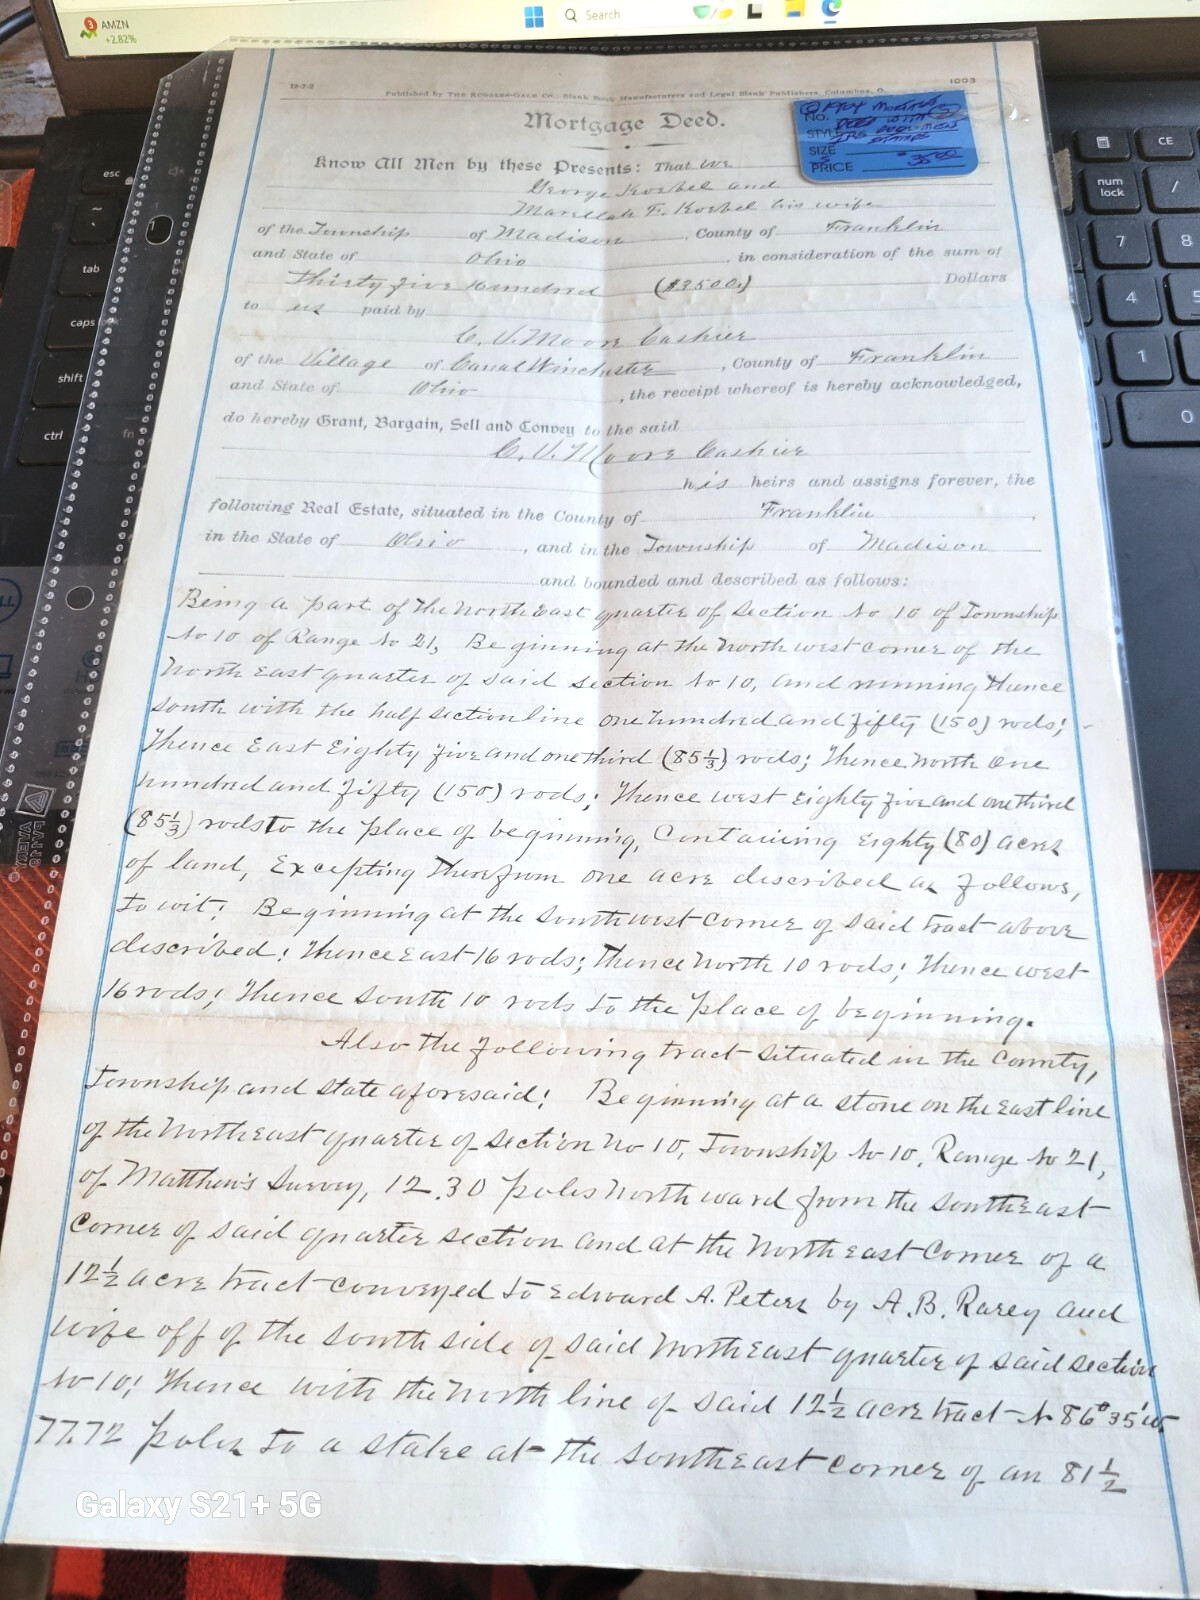 AMZN
+2.82%
Search
12-7-2
1003
Published by THE RUGGLES-GALE CO., Blank Book Manufacturers and Legal Blank Publishers, Columbus, O.
Mortgage Deed.
No.
STYLE
SIZE
PRICE
Know All Men by these Presents: That We
George Koebel and
F. Koebel his wife
of the Township of Madison, County of Franklin
and State of Ohio, in consideration of the sum of
Thirty five Hundred ($3500.) Dollars
to us paid by
C. V. Moore Cashier
of the Village of Canal Winchester, County of Franklin
and State of Ohio, the receipt whereof is hereby acknowledged,
do hereby Grant, Bargain, Sell and Convey to the said
C. V. Moore Cashier
his heirs and assigns forever, the
following Real Estate, situated in the County of Franklin,
in the State of Ohio, and in the Township of Madison
and bounded and described as follows:
Being a part of the North East quarter of Section No 10 of Township
No 10 of Range No 21, Beginning at the North west corner of the
North East quarter of said section No 10, and running Thence
south with the half section line one hundred and fifty (150) rods;
Thence East Eighty five and one third (85 1/3) rods; Thence North One
hundred and fifty (150) rods; Thence west Eighty five and one third
(85 1/3) rods to the place of beginning, Containing Eighty (80) acres
of land, Excepting Therefrom one acre described as follows,
To wit: Beginning at the Southwest corner of said tract above
described; Thence East 16 rods; Thence North 10 rods; Thence west
16 rods; Thence South 10 rods to the place of beginning.
Also the following tract situated in the County,
Township and state aforesaid: Beginning at a stone on the East line
of the North east quarter of Section No 10, Township No 10, Range No 21,
of Matthew's Survey, 12.30 poles North ward from the southeast
Corner of said quarter section and at the North east Corner of a
12 1/2 acre tract conveyed to Edward A. Peters by A. B. Rarey and
wife off of the South side of said Northeast quarter of said section
No 10; Thence with the North line of said 12 1/2 acre tract N 86° 35' W.
77.72 poles to a stake at the southeast corner of an 81 1/2
Galaxy S21+ 5G
esc
tab
caps
shift
ctrl
fn
num
lock
CE
/
7
8
4
5
1
0